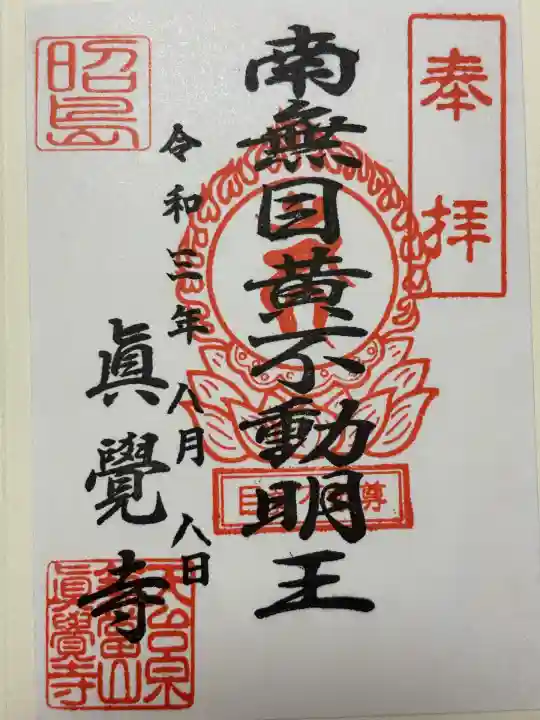 奉拝
南無目黄不動明王
令和三年八月八日
眞覺寺
昭島
天台宗
眞覺寺